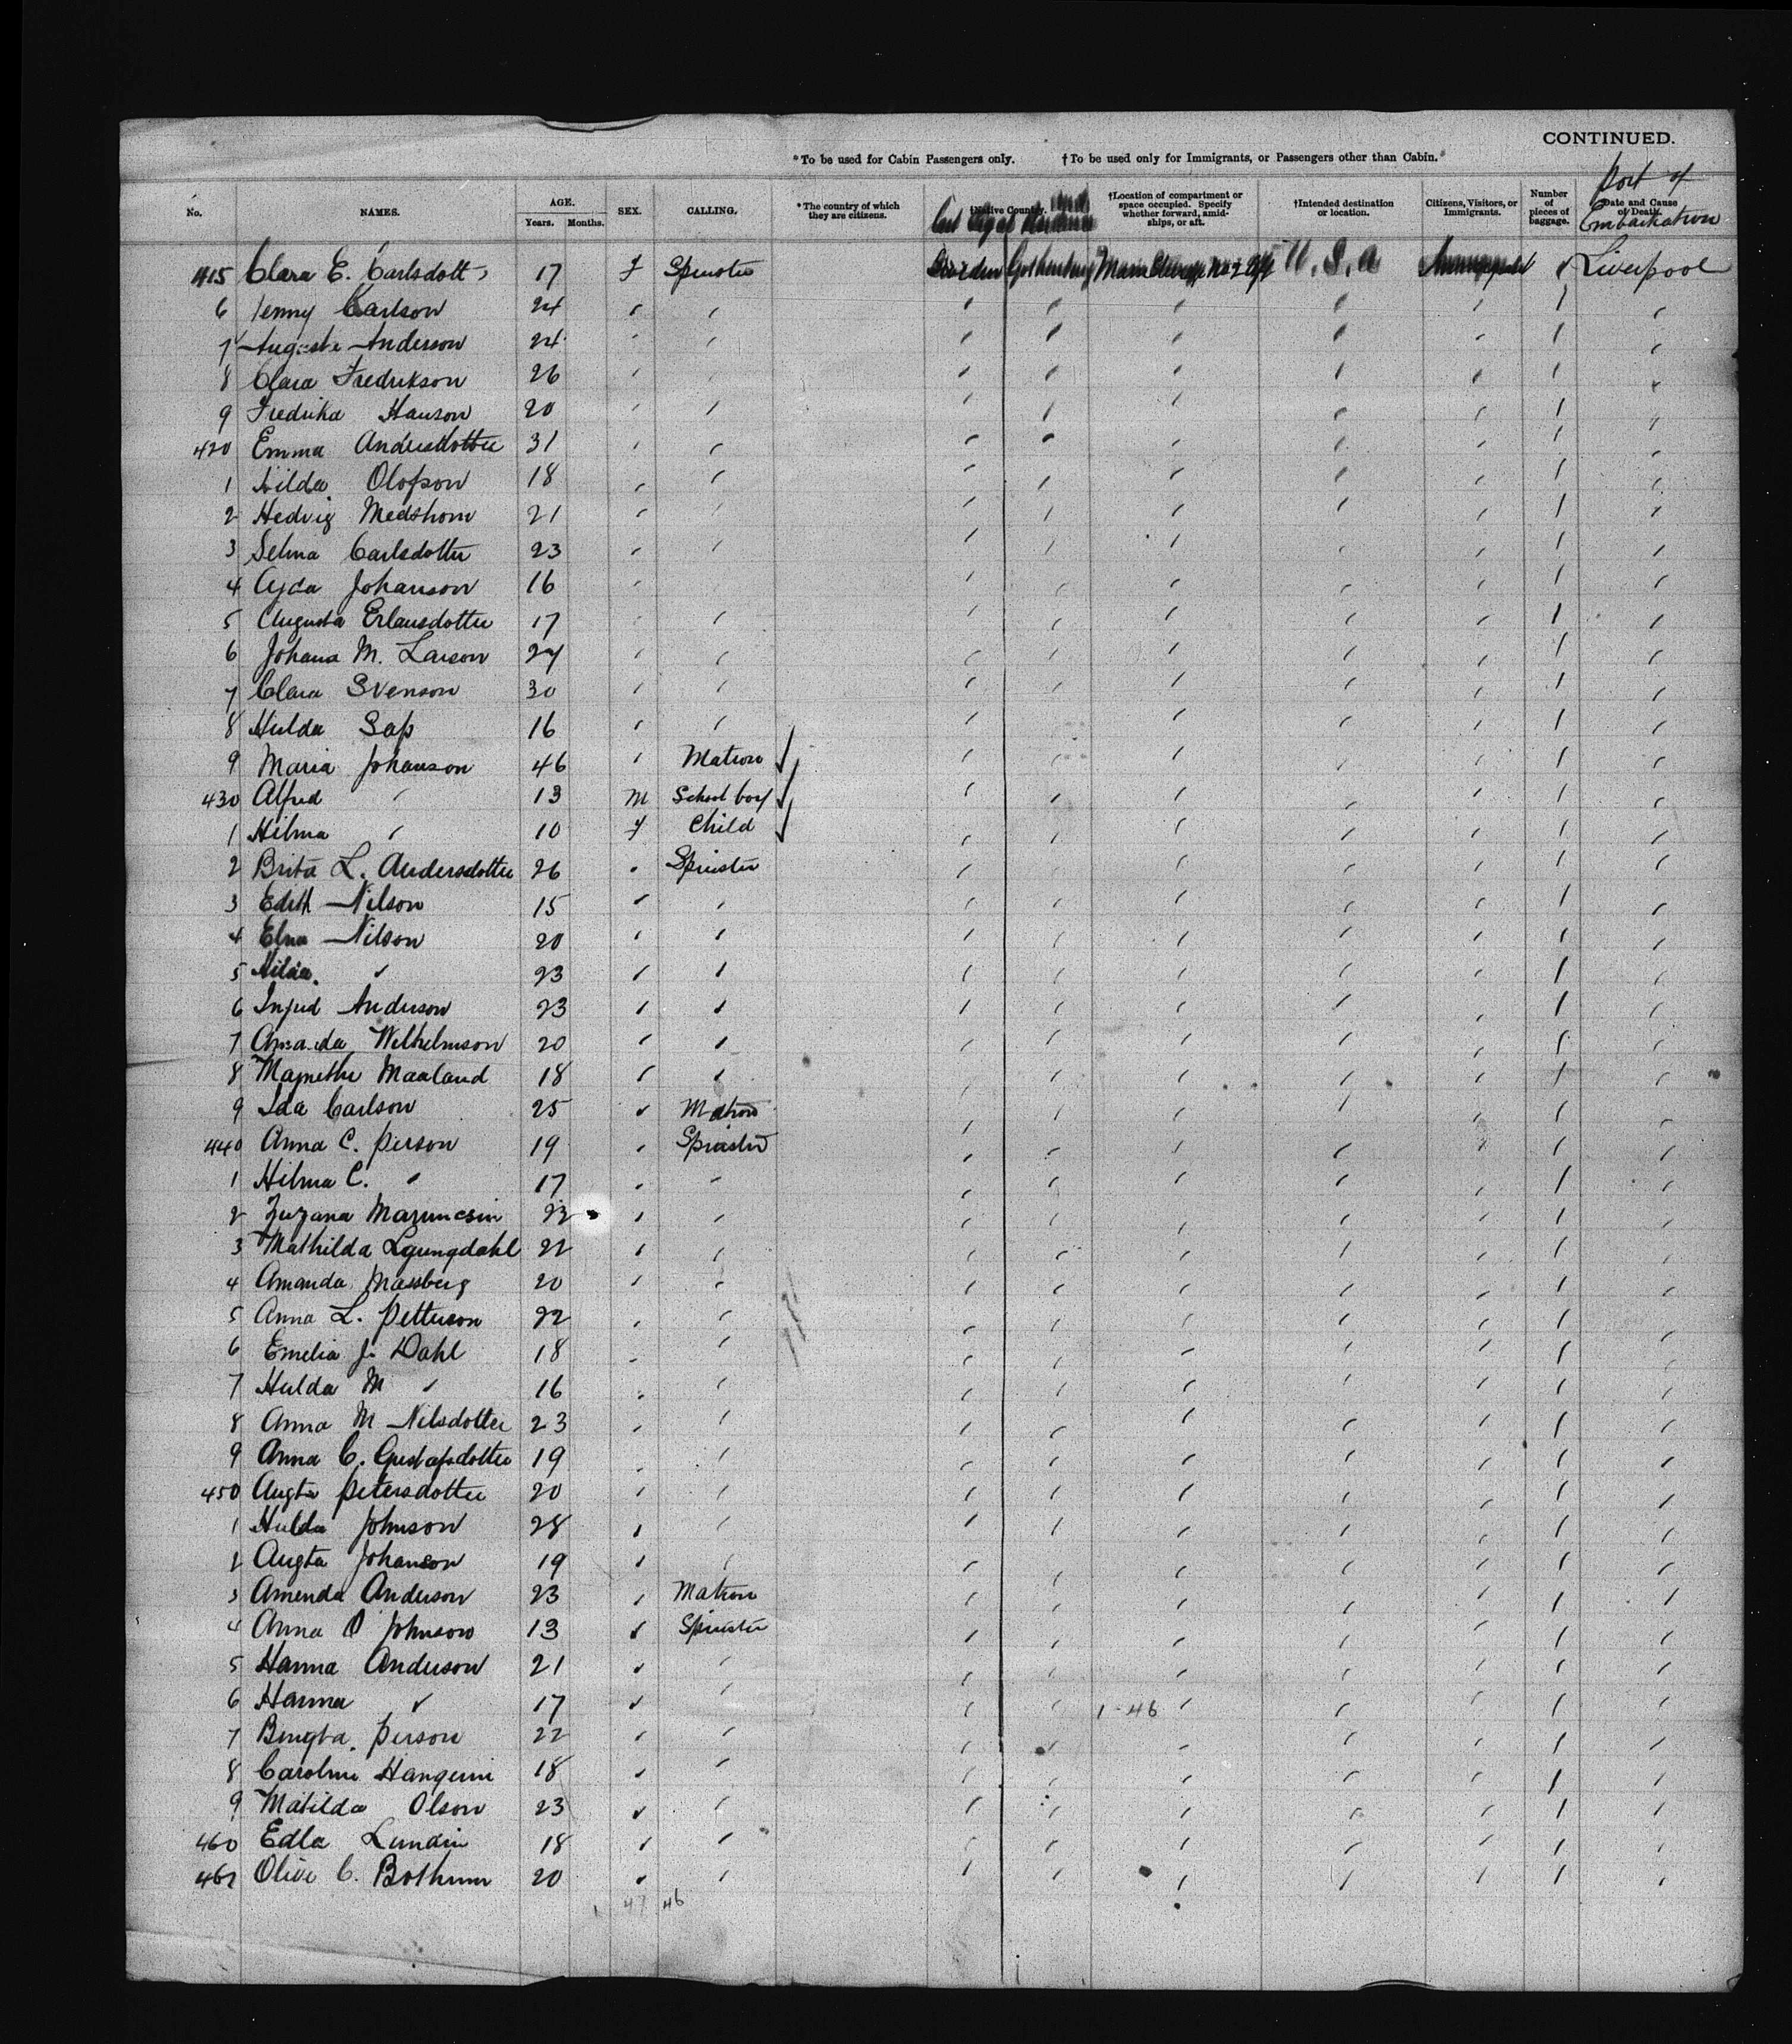 CONTINUED.
*To be used for Cabin Passengers only. †To be used only for Immigrants, or Passengers other than Cabin.
Port of Embarkation
No. NAMES. AGE. Years. Months. SEX. CALLING. *The country of which they are citizens. †Native Country. †Location of compartment or space occupied. Specify whether forward, amidships, or aft. †Intended destination or location. Citizens, Visitors, or Immigrants. Number of pieces of baggage. Date and Cause of Death.
415 Clara E. Carlsdott 17 F Spinster Sweden Gothenburg U.S.A 1 Liverpool
6 Jenny Carlson 24 1
7 Augusta Anderson 24 1
8 Clara Fredrikson 26 1
9 Fredrika Hanson 20 1
420 Emma Andersdotter 31 1
1 Hilda Olofson 18 1
2 Hedvig 21 1
3 Selma Carlsdotter 23 1
4 Johanson 16 1
5 Augusta Erlansdotter 17 1
6 Johana M. Larson 27 1
7 Clara Svenson 30 1
8 Hulda 16 1
9 Maria Johanson 46 Matron 1
430 Alfred " 13 M School boy 1
1 Hilma " 10 F Child 1
2 Brita L. Andersdotter 26 Spinster 1
3 Edith Nilson 15 1
4 Elna Nilson 20 1
5 " 23 1
6 Anderson 23 1
7 Amanda Wilhelmson 20 1
8 Maaland 18 1
9 Ida Carlson 25 Matron 1
440 Anna C. Person 19 Spinster 1
1 Hilma C. " 17 1
2 Zuzana 1
3 Mathilda Lgungdahl 22 1
4 Amanda Massberg 20 1
5 Anna L. Petterson 22 1
6 Emelia J. Dahl 18 1
7 Hulda M " 16 1
8 Anna M Nilsdotter 23 1
9 Anna C. Gustafsdotter 19 1
450 Augta Petersdotter 20 1
1 Hulda Johnson 28 1
2 Augta Johanson 19 1
3 Amenda Anderson 23 Matron 1
4 Anna O Johnson 13 Spinster 1
5 Hanna Anderson 21 1
6 Hanna " 17 1-46 1
7 Bengta Person 22 1
8 Caroline 18 1
9 Matilda Olson 23 1
460 Edla Lundin 18 1
461 Olive C. 20 1
47 46